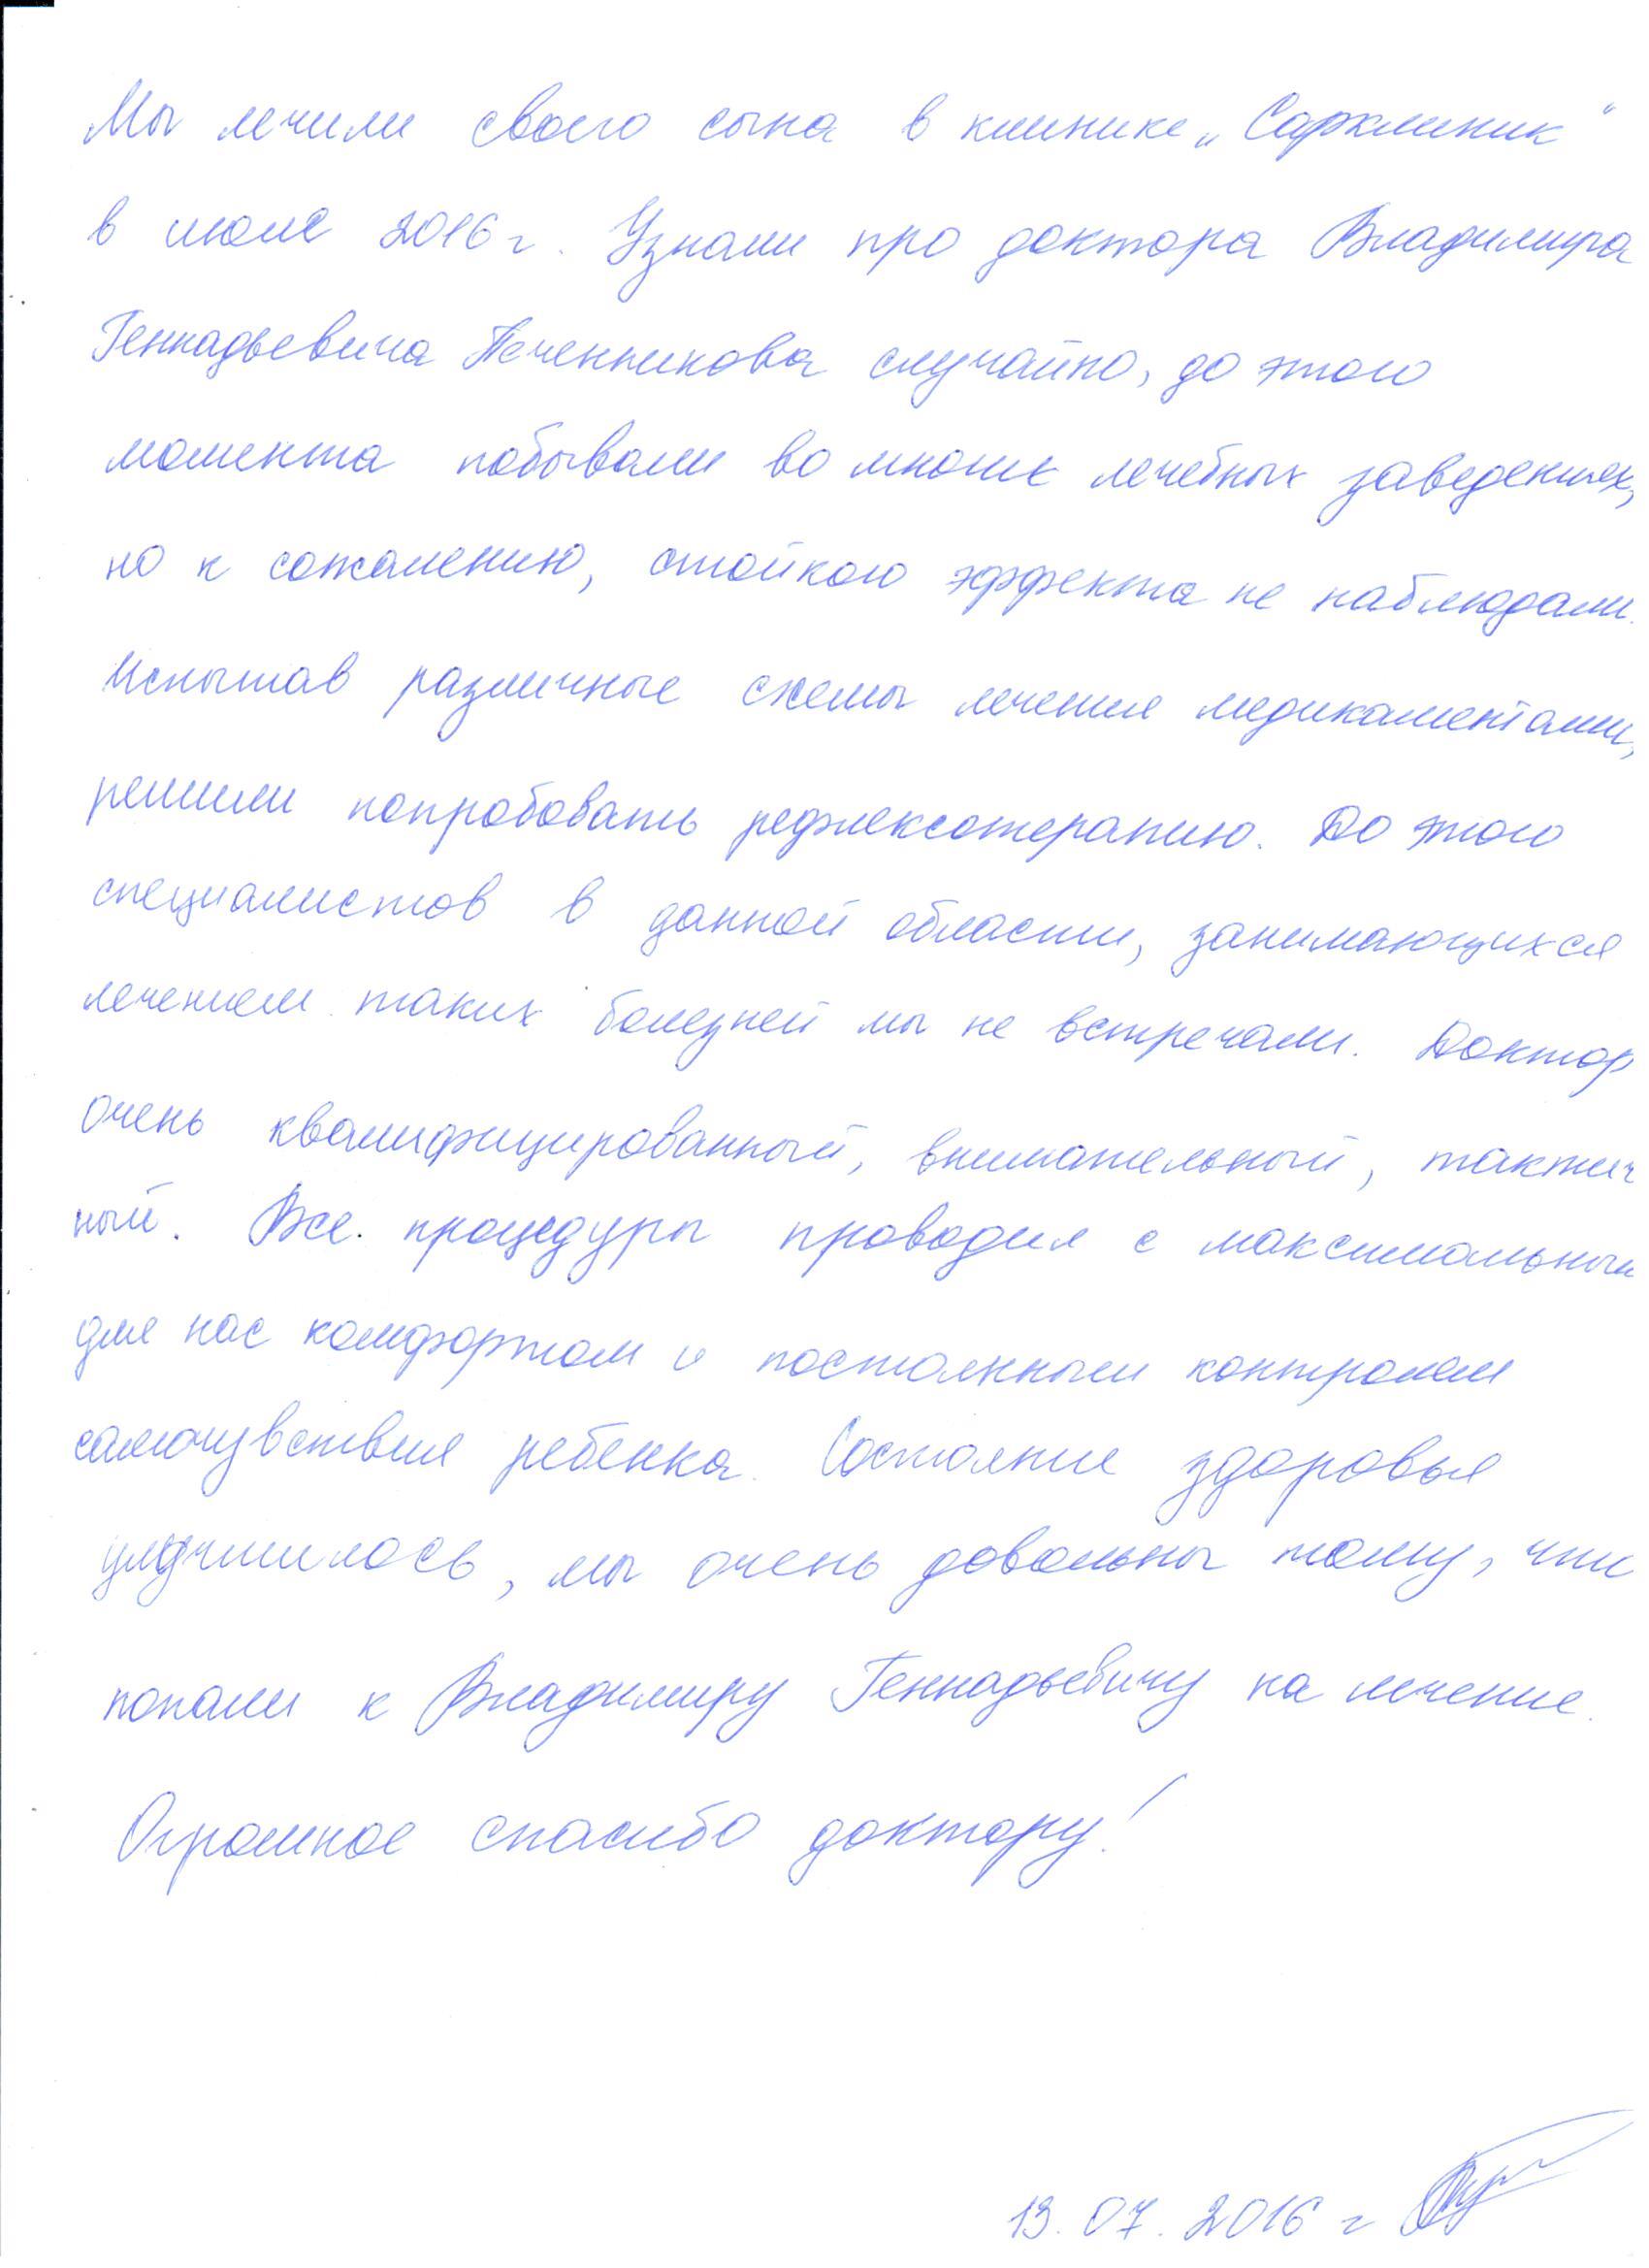 Мы лечили своего сына в клинике „Сарклиник"
в июле 2016 г. Узнали про доктора Владимира
Геннадьевича Печенникова случайно, до этого
момента побывали во многих лечебных заведениях,
но к сожалению, стойкого эффекта не наблюдали.
Испытав различные схемы лечения медикаментами,
решили попробовать рефлексотерапию. До этого
специалистов в данной области, занимающихся
лечением таких болезней мы не встречали. Доктор
очень квалифицированный, внимательный, тактич
ный. Все процедуры проводил с максимальным
для нас комфортом и постоянным контролем
самочувствия ребенка. Состояние здоровья
улучшилось, мы очень довольны тому, что
попали к Владимиру Геннадьевичу на лечение.
Огромное спасибо доктору!
13.07.2016 г